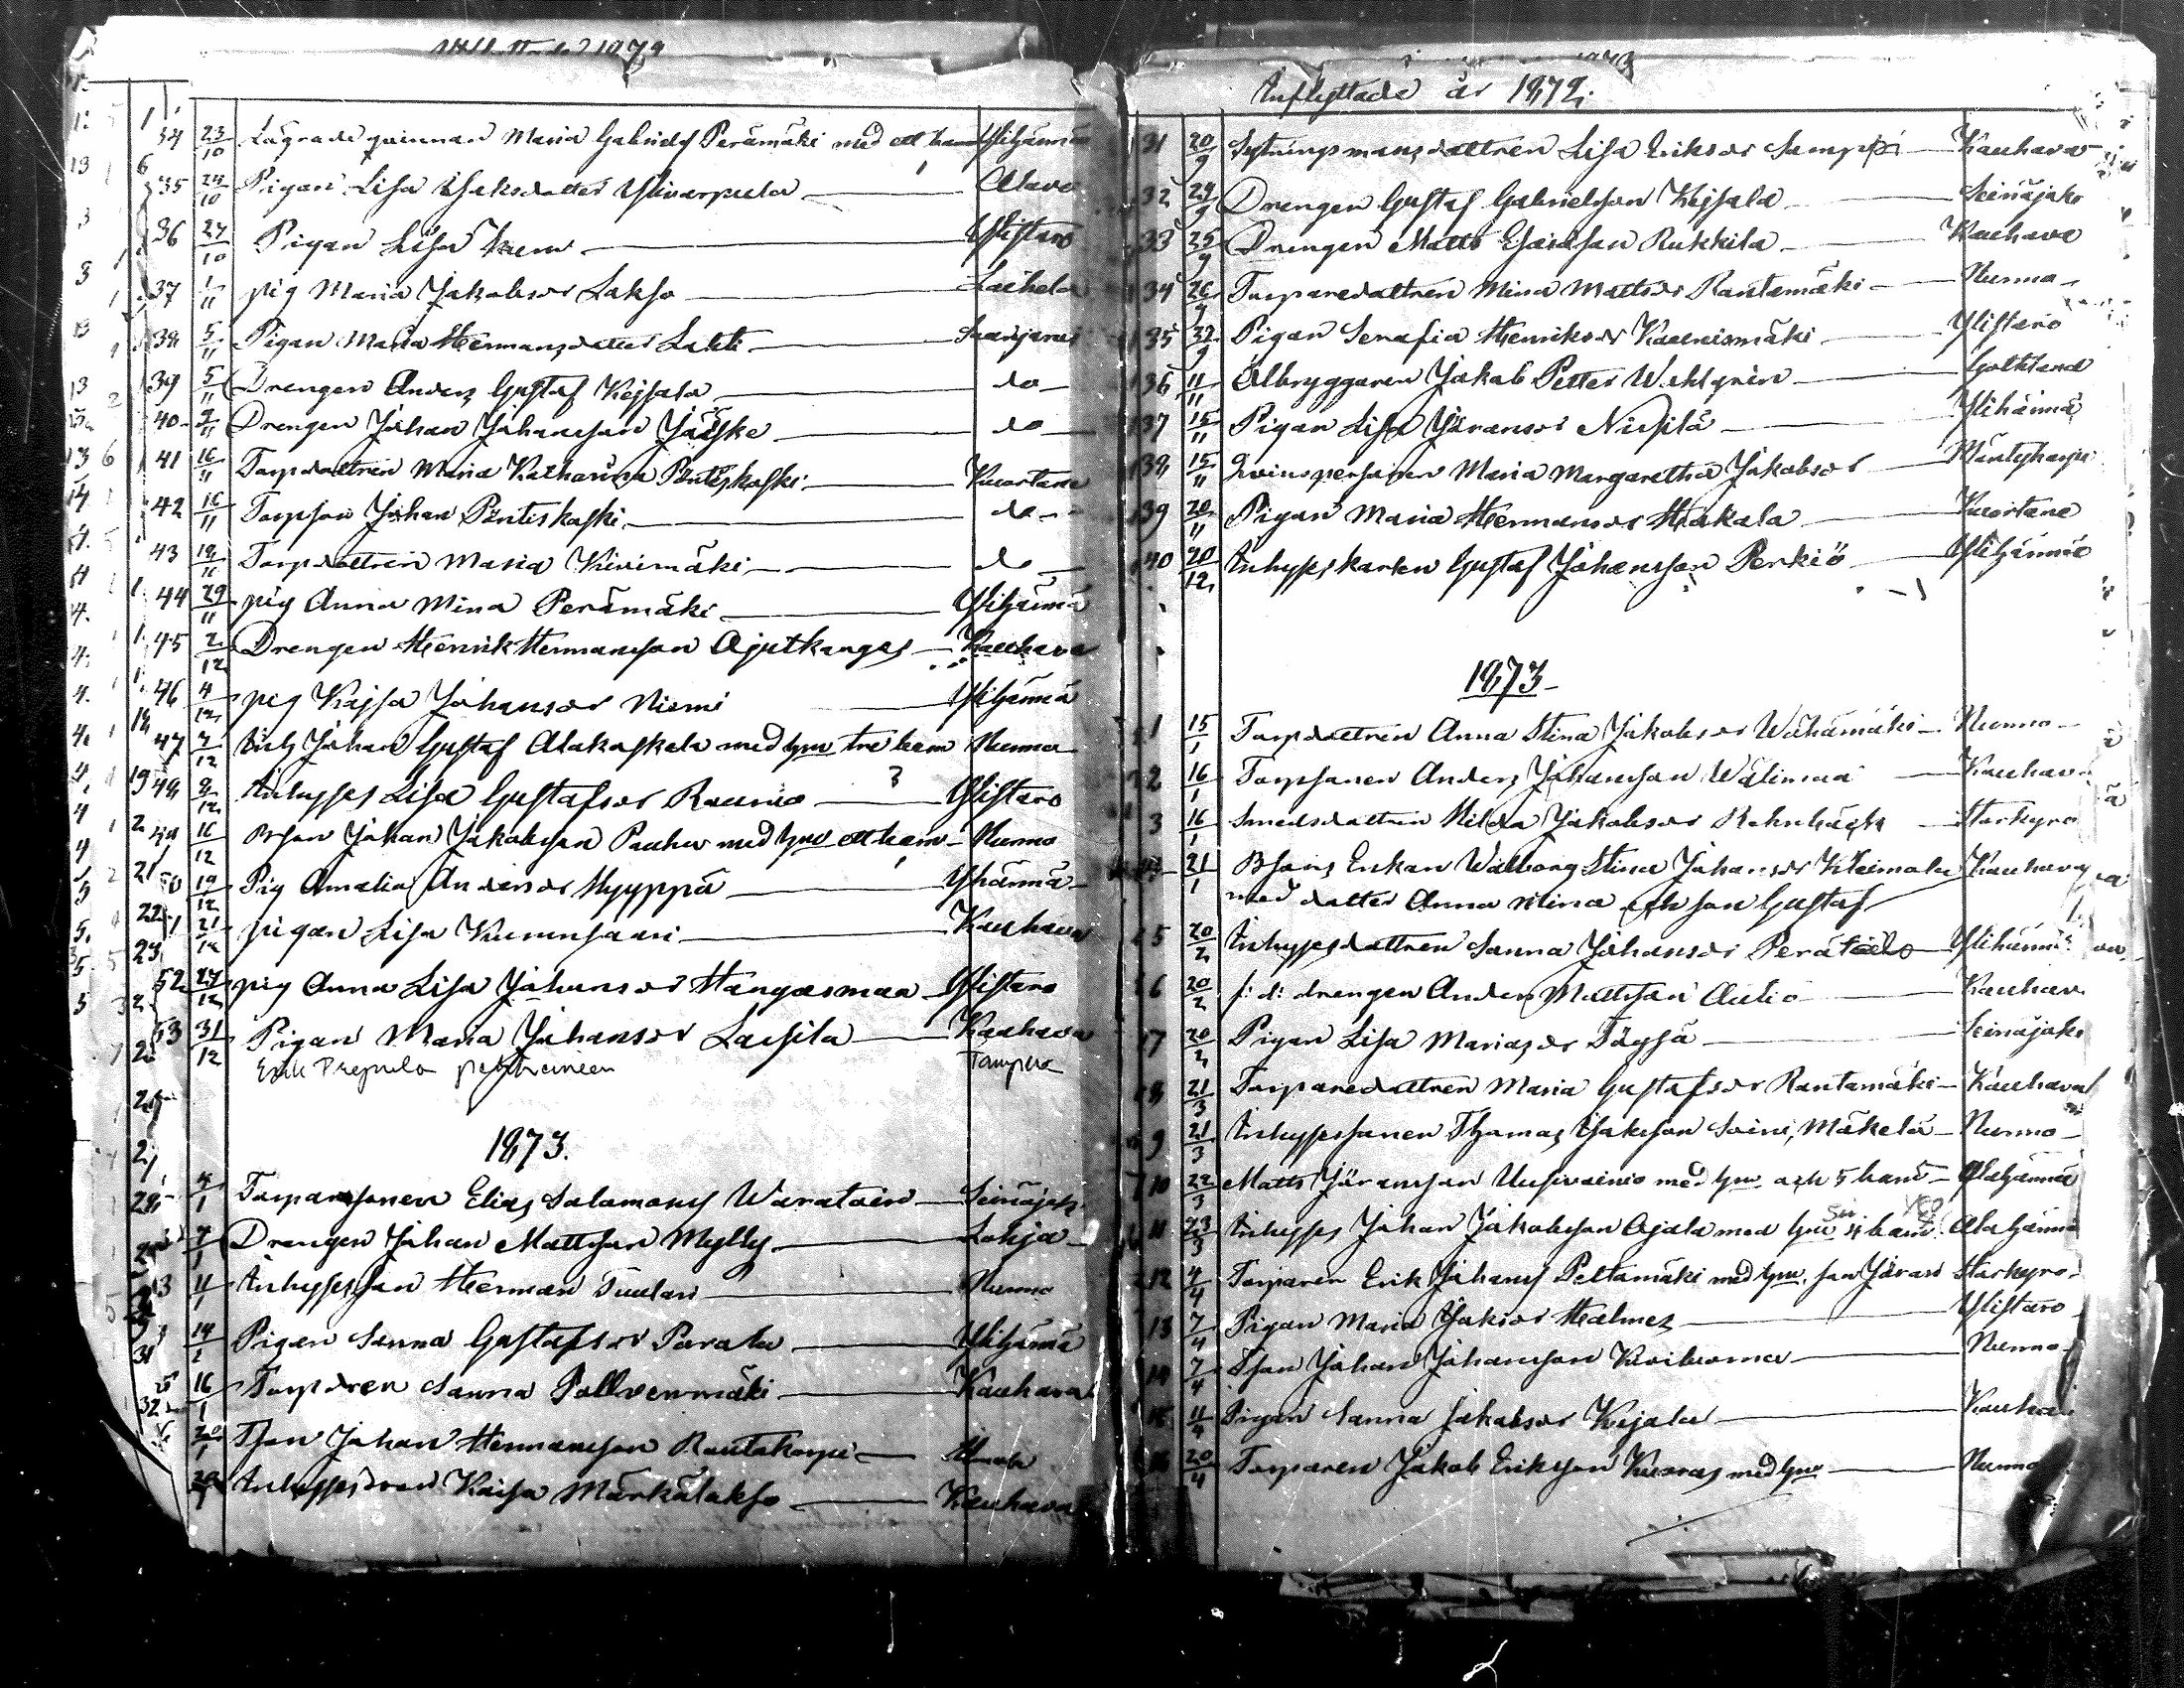 34 23/10 Lagrade qvinnan Maria Gabrielsd Perämäki med ett barn Ylihärmä
35 24/10 Pigan Lisa Isaksdotter Ylivarpula Alavo
36 27/10 Pigan Lisa Ylistaro
37 1/11 pig Maria Jakobsdr Lakso Laihela
38 5/11 Pigan Maria Hermansdotter Lahti
39 5/11 Drengen Anders Gustaf Kejsala do
40 9/11 Drengen Johan Johansson Jääske do
41 16/11 Torpdottren Maria Katharina Pöntiskoski Kuortane
42 16/11 Torpson Johan Pöntiskoski do
43 18/11 Torpdottren Maria Kivimäki do
44 29/11 pig Anna Mina Perämäki Ylihärmä
45 2/12 Drengen Henrik Hermansson Ajutkangas Kauhava
46 4/12 pig Kajsa Johansdr Niemi Ylihärmä
47 7/12 Inh Johan Gustaf Alakoskela med hu tre barn Nurmo
48 8/12 Inhyses Lisa Gustafsdr Raunio 3 Ylistaro
49 16/12 Bson Johan Jakobsson Pauha med hu ett barn Nurmo
50 19/12 Pig Amalia Andersdr Hyyppä Ylihärmä
51 21/12 pigan Lisa Kurunsaari Kauhava
52 27/12 pig Anna Lisa Johansdr Hangasmaa Ylistaro
53 31/12 Pigan Maria Johansdr Lassila Kauhava
Erik Prepula Tampere
1873.
4/1 Torparesonen Elias Salomons Waratain Seinäjoki
7/1 Drengen Johan Mattsson Mylly Lohja
3 11/1 Inhysesson Herman Tuulari Nurmo
14/1 Pigan Sanna Gustafsdr Porola Ylihärmä
5 16/1 Torpdren Sanna Pollvenmäki Kauhava
20/1 Tson Johan Hermansson Rautakorpi
Inhysesdren Kaisa Märkälakso Kauhava
Inflyttade år 1872.
31 20/9 Sytningsmansdottren Lisa Eriksdr Samppi Kauhava
32 24/9 Drengen Gustaf Gabrielsson Kejsala Seinäjoki
33 25/9 Drengen Matts Esaiasson Rukkila Kauhava
34 26/9 Torparedottren Mina Mattsdr Rantamäki Nurmo
35 Pigan Serafia Henriksdr Kaunismäki Ylistaro
36 11/11 Ölbryggaren Jakob Petter Wahlgrén Gothland
37 15/11 Pigan Lisa Göransdr Niesilä Ylihärmä
38 15/11 Qvinspersonen Maria Margaretha Jakobsdr Mäntyharju
39 20/11 Pigan Maria Hermansdr Hakala Kuortane
40 20/12 Inhyseskarlen Gustaf Johansson Perkiö Ylihärmä
1873
1 15/1 Torpdottren Anna Stina Jakobsdr Wähämäki Nurmo
2 16/1 Torpsonen Anders Johansson Wälimaa Kauhava
3 16/1 Smedsdottren Hilda Jakobsdr Rehnbäck Storkyro
4 21/1 Bsons Enkan Walborg Stina Johansdr Kleimola Kauhava
med dotter Anna Mina och son Gustaf
5 20/2 Inhysesdottren Sanna Johansdr Perätalo Ylihärmä
6 20/2 f: d: drengen Anders Mattsson Aulio Kauhava
7 20/2 Pigan Lisa Mariasdr Töysä Seinäjoki
8 21/3 Torparedottren Maria Gustafsdr Rantamäki Kauhava
9 21/3 Inhysessonen Thomas Isaksson Soini, Mäkelä Nurmo
10 22/3 Matts Göransson Uusivainio med hu och 5 barn Alahärmä
11 23/3 Inhyses Johan Jakobsson Ojala med hu 4 barn Alahärmä
12 4/4 Torparen Erik Johans Peltamäki med hu, son Göran Storkyro
13 7/4 Pigan Maria Isaksdr Holmes Ylistaro
14 7/4 Tson Johan Johansson Koiluoma Nurmo
15 11/4 Pigan Sanna Jakobsdr Kejala Kauhava
16 20/4 Torparen Jakob Eriksson Kuoras med hu Nurmo